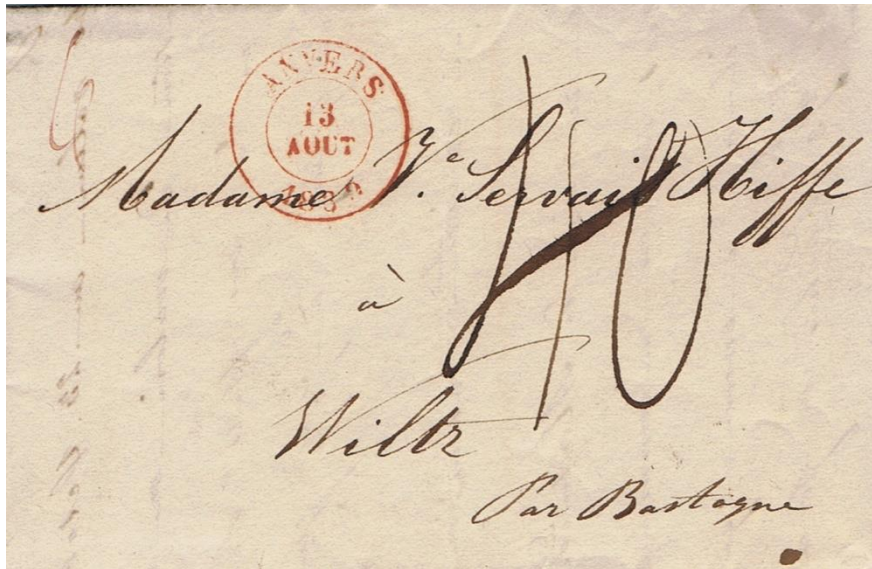 ANVERS
13
AOUT
1839
Madame Vᵉ Servais Hiffe
à
Wiltz
Par Bastogne